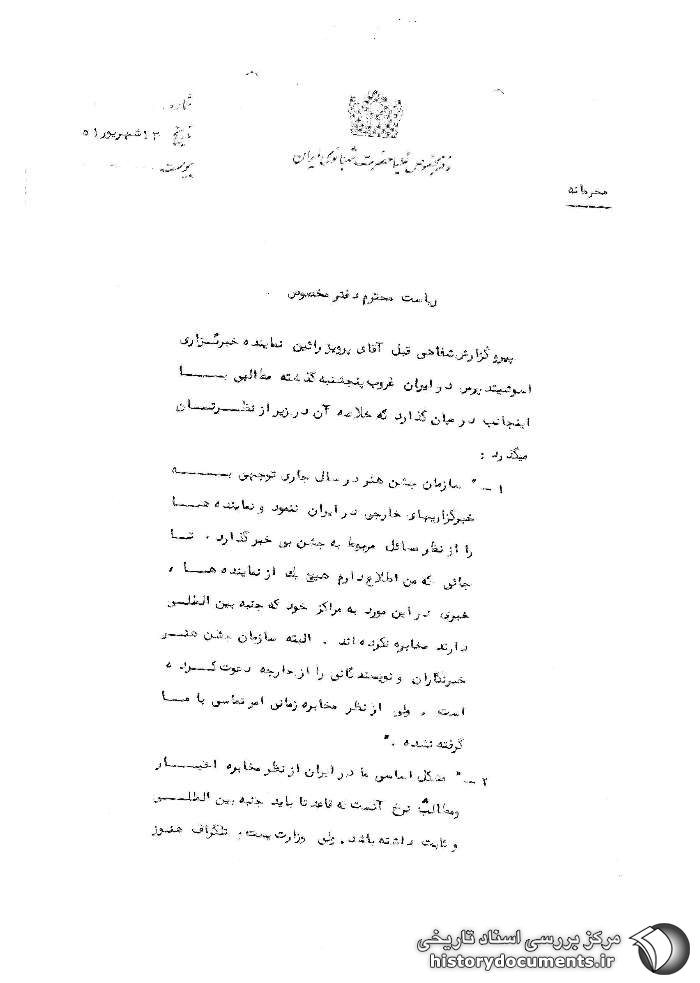 شماره
تاریخ ۱۲ شهریور ۵۱
پیوست
دفتر مخصوص علیاحضرت شهبانوی ایران
محرمانه
ریاست محترم دفتر مخصوص .
پیرو گزارش شفاهی قبل آقای پرویز رائین نماینده خبرگزاری
اسوشیتد پرس در ایران غروب پنجشنبه گذشته مطالبی بـــــا
اینجانب در میان گذارد که خلاصه آن در زیر از نظـرتسان
میگذرد :
۱ـ " سازمان جشن هنر در سال جاری توجهی بــــــه
خبرگزاریهای خارجی در ایران ننمود و نماینده هـــا
را از نظر مسائل مربوط به جشن بی خبر گذارد . تــا
جائی که من اطلاع دارم هیچ یک از نماینده هــا ،
خبری در این مورد به مراکز خود که جنبه بین المللــی
دارند مخابره نکرده اند . البته سازمان جشن هنــر
خبرنگاران و نویسندگانی را از خارجه دعوت کــرده
است . ولی از نظر مخابره زمانی امر تماسی با مــا
گرفته نشده . "
۲ـ " مشکل اساسی ما در ایران از نظر مخابره اخبــار
ومطالب نرخ آنست که قاعدتا باید جنبه بین المللــی
و ثابت داشته باشد . ولی وزارت پست و تلگراف هنــوز
مرکز بررسی اسناد تاریخی
historydocuments.ir